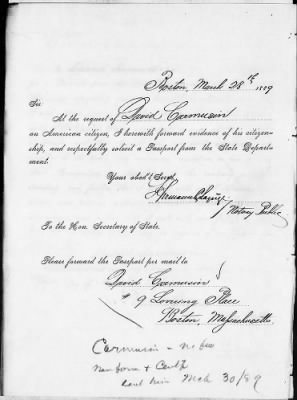 Boston, March 28th 1889
Sir
At the request of David Cormusin
an American citizen, I herewith forward evidence of his citizen-
ship, and respectfully solicit a Passport from the State Depart-
ment.
Your obed't Serv't
Notary Public
To the Hon. Secretary of State.
Please forward the Passport per mail to
David Cormusin
9 Place
Boston, Massachusetts.
Cormusin - no fee
New form & Certf
sent him Mch 30/89